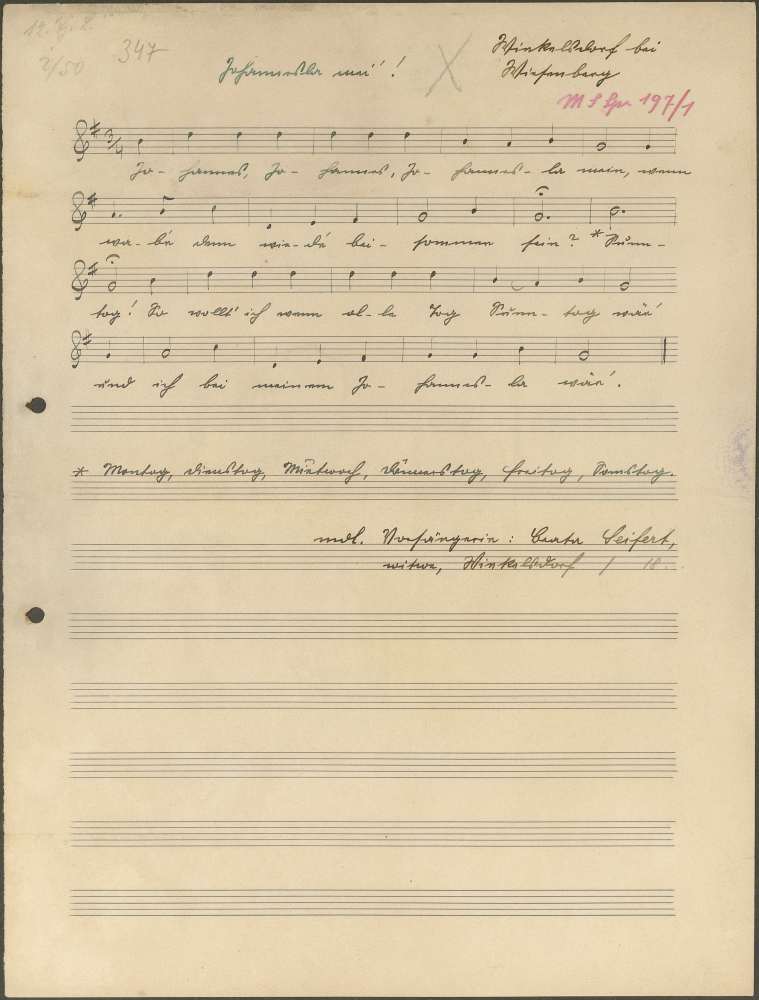 347
Johannesla mei'!
Winkelsdorf bei
Wiesenberg
197/1
3/4
Jo- hannes, Jo- hannes, Jo- hannes- la mein, wenn
wa- bé denn wie- dé bei- sommen sein? * Sunn-
tog! So wollt' ich wenn al- le Tog Sunn- tog wäré
und ich bei meinem Jo- hannes- la wäré.
* Montog, Dienstog, Mietwoch, Donnerstog, Freitog, Somstog.
mdl. Vorsängerin: Beata Seifert,
witwe, Winkelsdorf / 18